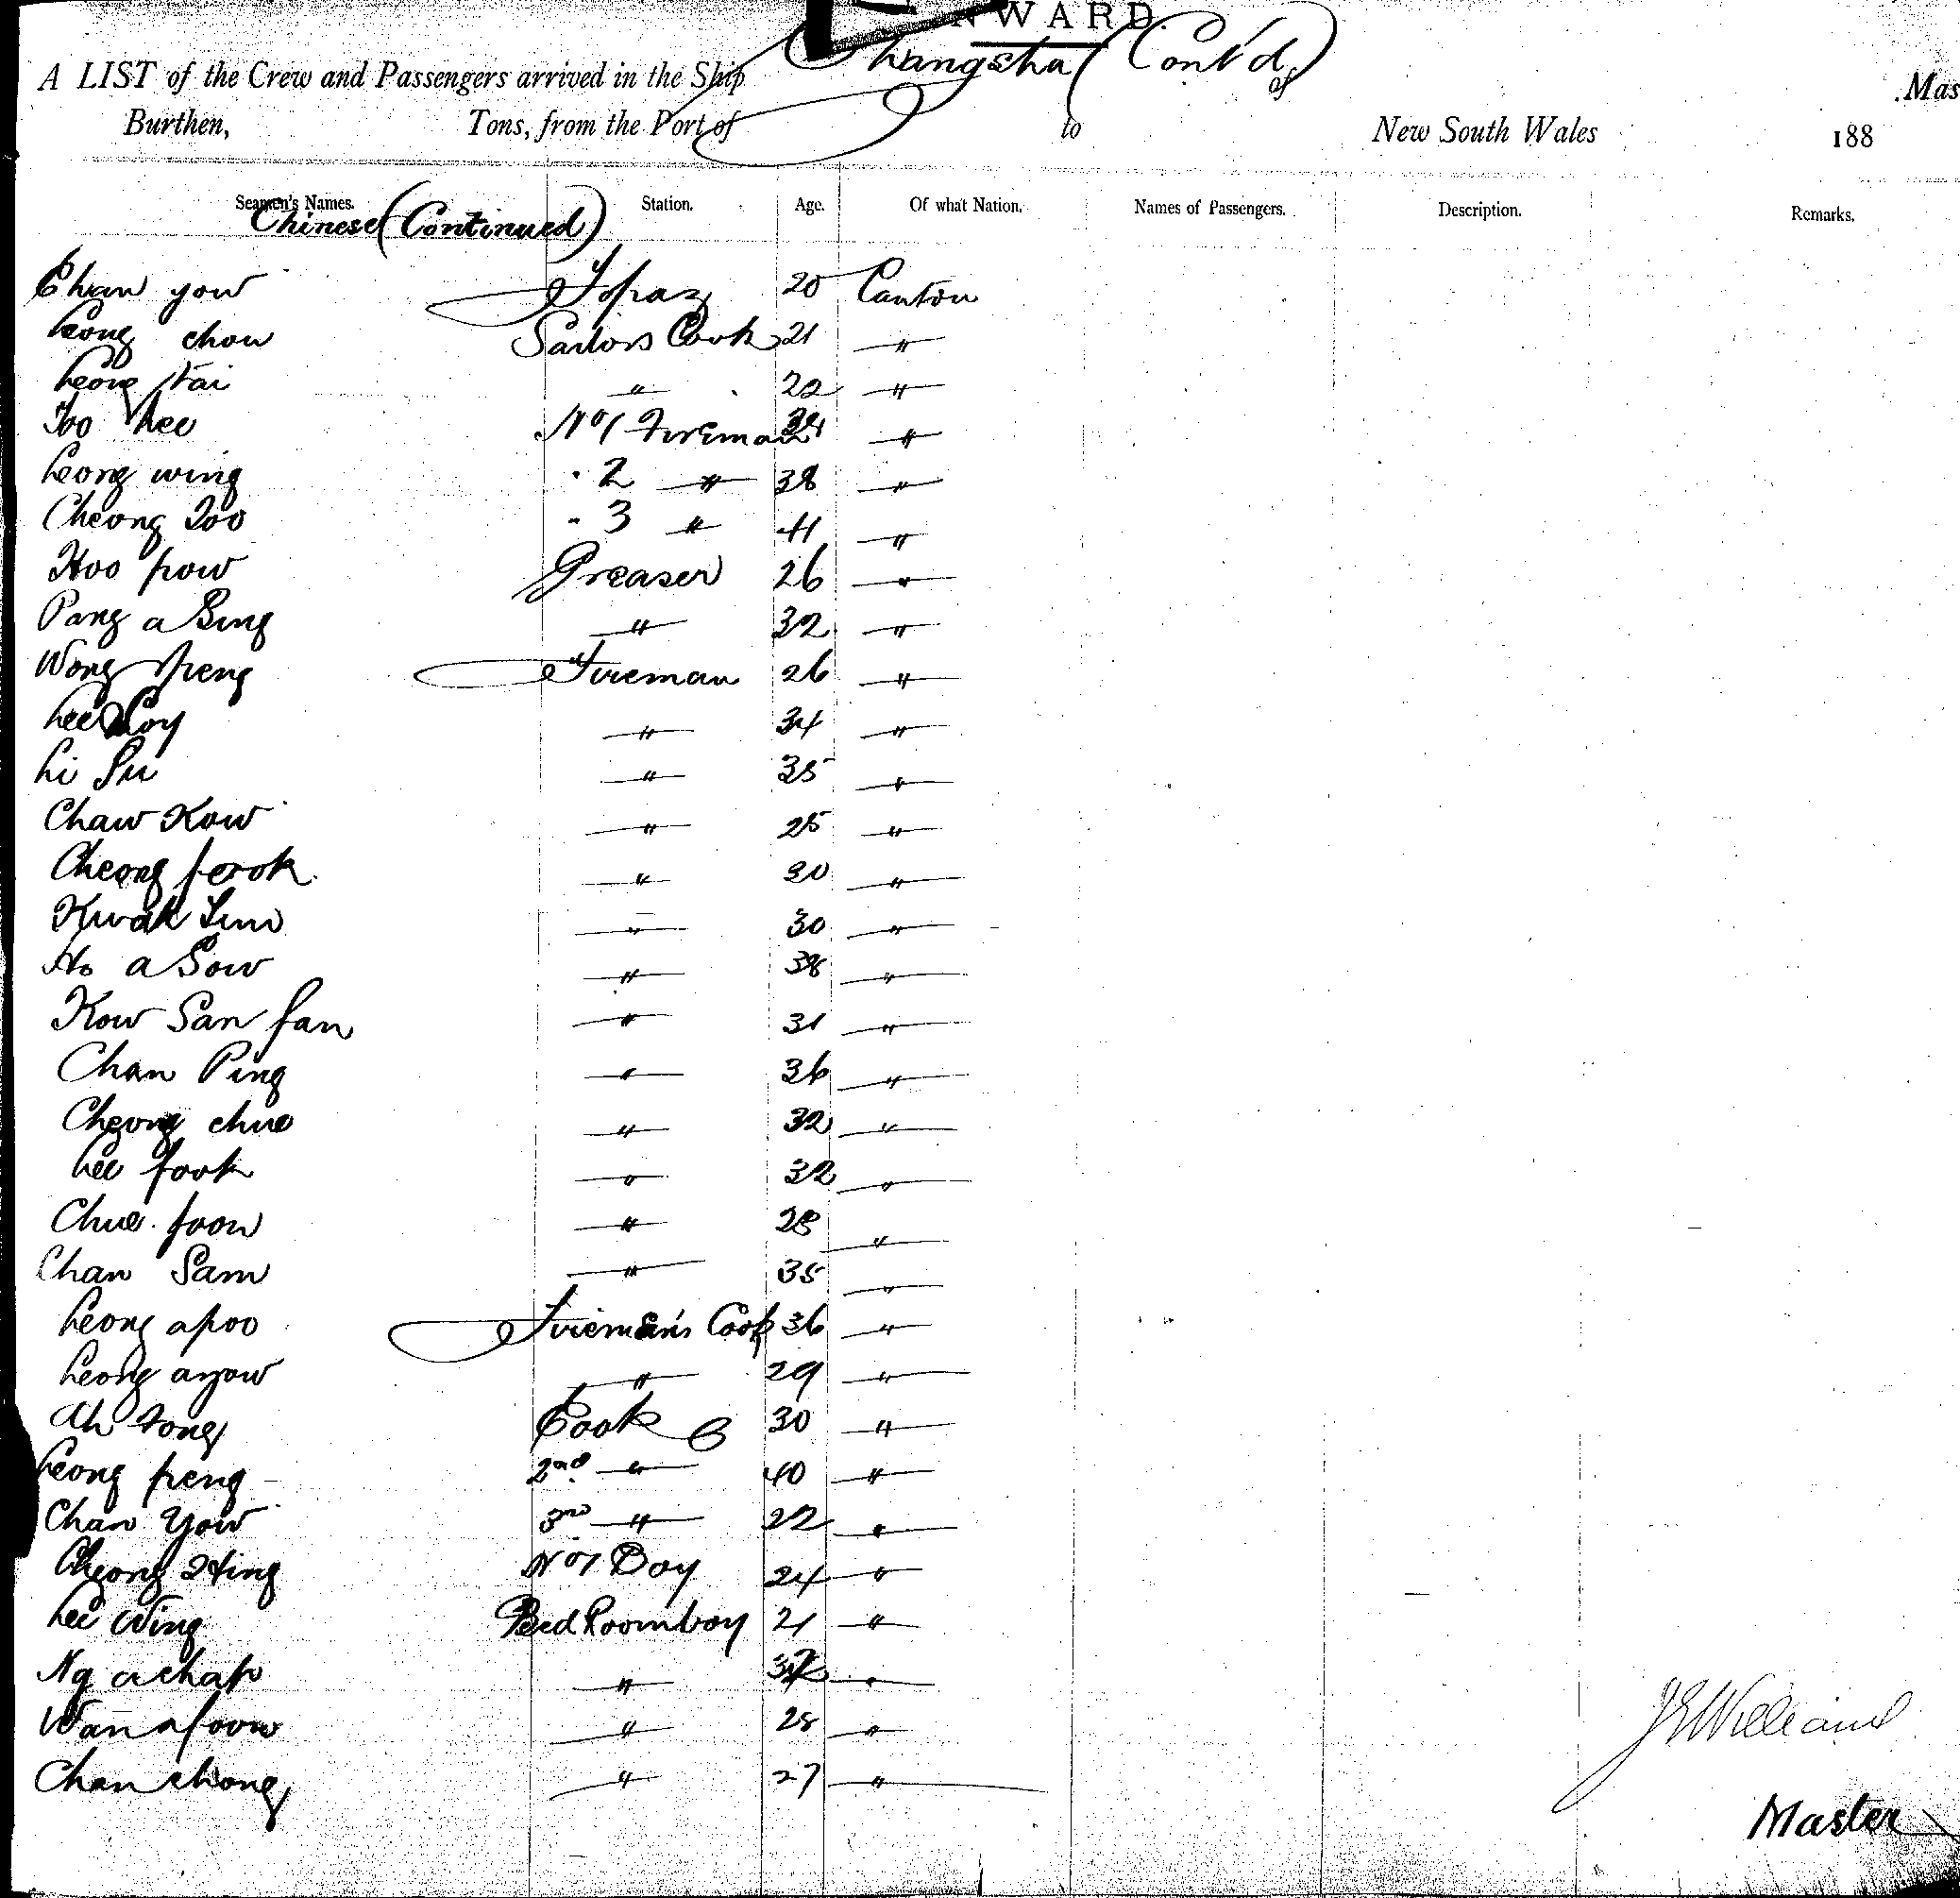 INWARD.
A LIST of the Crew and Passengers arrived in the Ship Changsha (Cont'd) of Mas
Burthen, Tons, from the Port of to New South Wales 188
Seamen's Names. Station. Age. Of what Nation. Names of Passengers. Description. Remarks.
Chinese (Continued)
Chan yow Topaz 20 Canton
Leong chow Sailors Cook 21 "
Leong Kai " 22 "
Too Kee No 1 Fireman "
Leong wing " 2 " 38 "
Cheong Too " 3 " 41 "
Hoo pow Greaser 26 "
Pang a Sing " 32 "
Wong Peng Fireman 26 "
Lee Hoy " 34 "
Li Su " 35 "
Chaw Kow " 25 "
Cheong fook " 30 "
Kwak Sun " 30 "
Ho a Sow " 38 "
Kow San fan " 31 "
Chan Ping " 36 "
Cheong chue " 32 "
Lee fook " 32 "
Chue foon " 28 "
Chan Sam " 35 "
Leong apoo Fireman's Cook 36 "
Leong ayow " 29 "
Ah Fong Cook 30 "
Leong peng 2nd " 40 "
Chan Yow 3rd " 22 "
Cheong Hing No 1 Boy 24 "
Lee Wing Bed Room boy 21 "
Ng achap " "
Wan afoow " 28 "
Chan chong " 27 "
J E Williams
Master